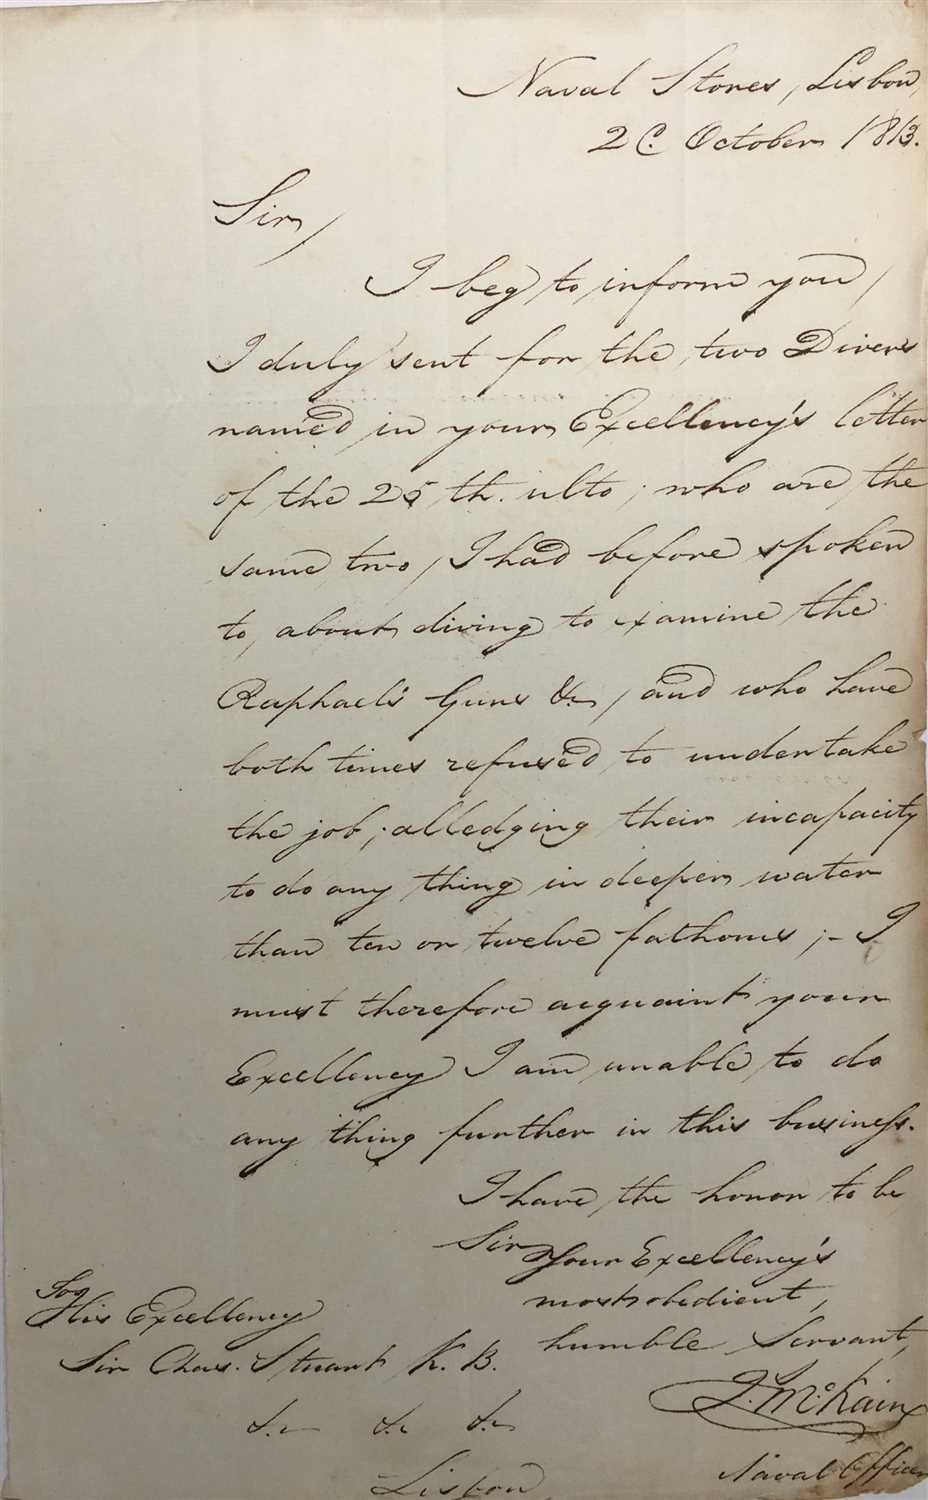 Naval Stores, Lisbon,
October 1813.
Sir,
I beg to inform you,
I duly sent for the two Divers
named in your Excellency's letter
of the 25th. ulto; who are the
same two, I had before spoken
to, about diving to examine the
Raphael's Guns &c, and who have
both times refused to undertake
the job; alledging their incapacity
to do any thing in deeper water
than ten or twelve fathoms;- I
must therefore acquaint your
Excellency I am unable to do
any thing further in this business.
I have the honor to be
Sir,
Your Excellency's
most obedient,
humble Servant,
J. McKain
Naval Officer
To
His Excellency
Sir Chas. Stuart K. B.
&c &c &c
Lisbon